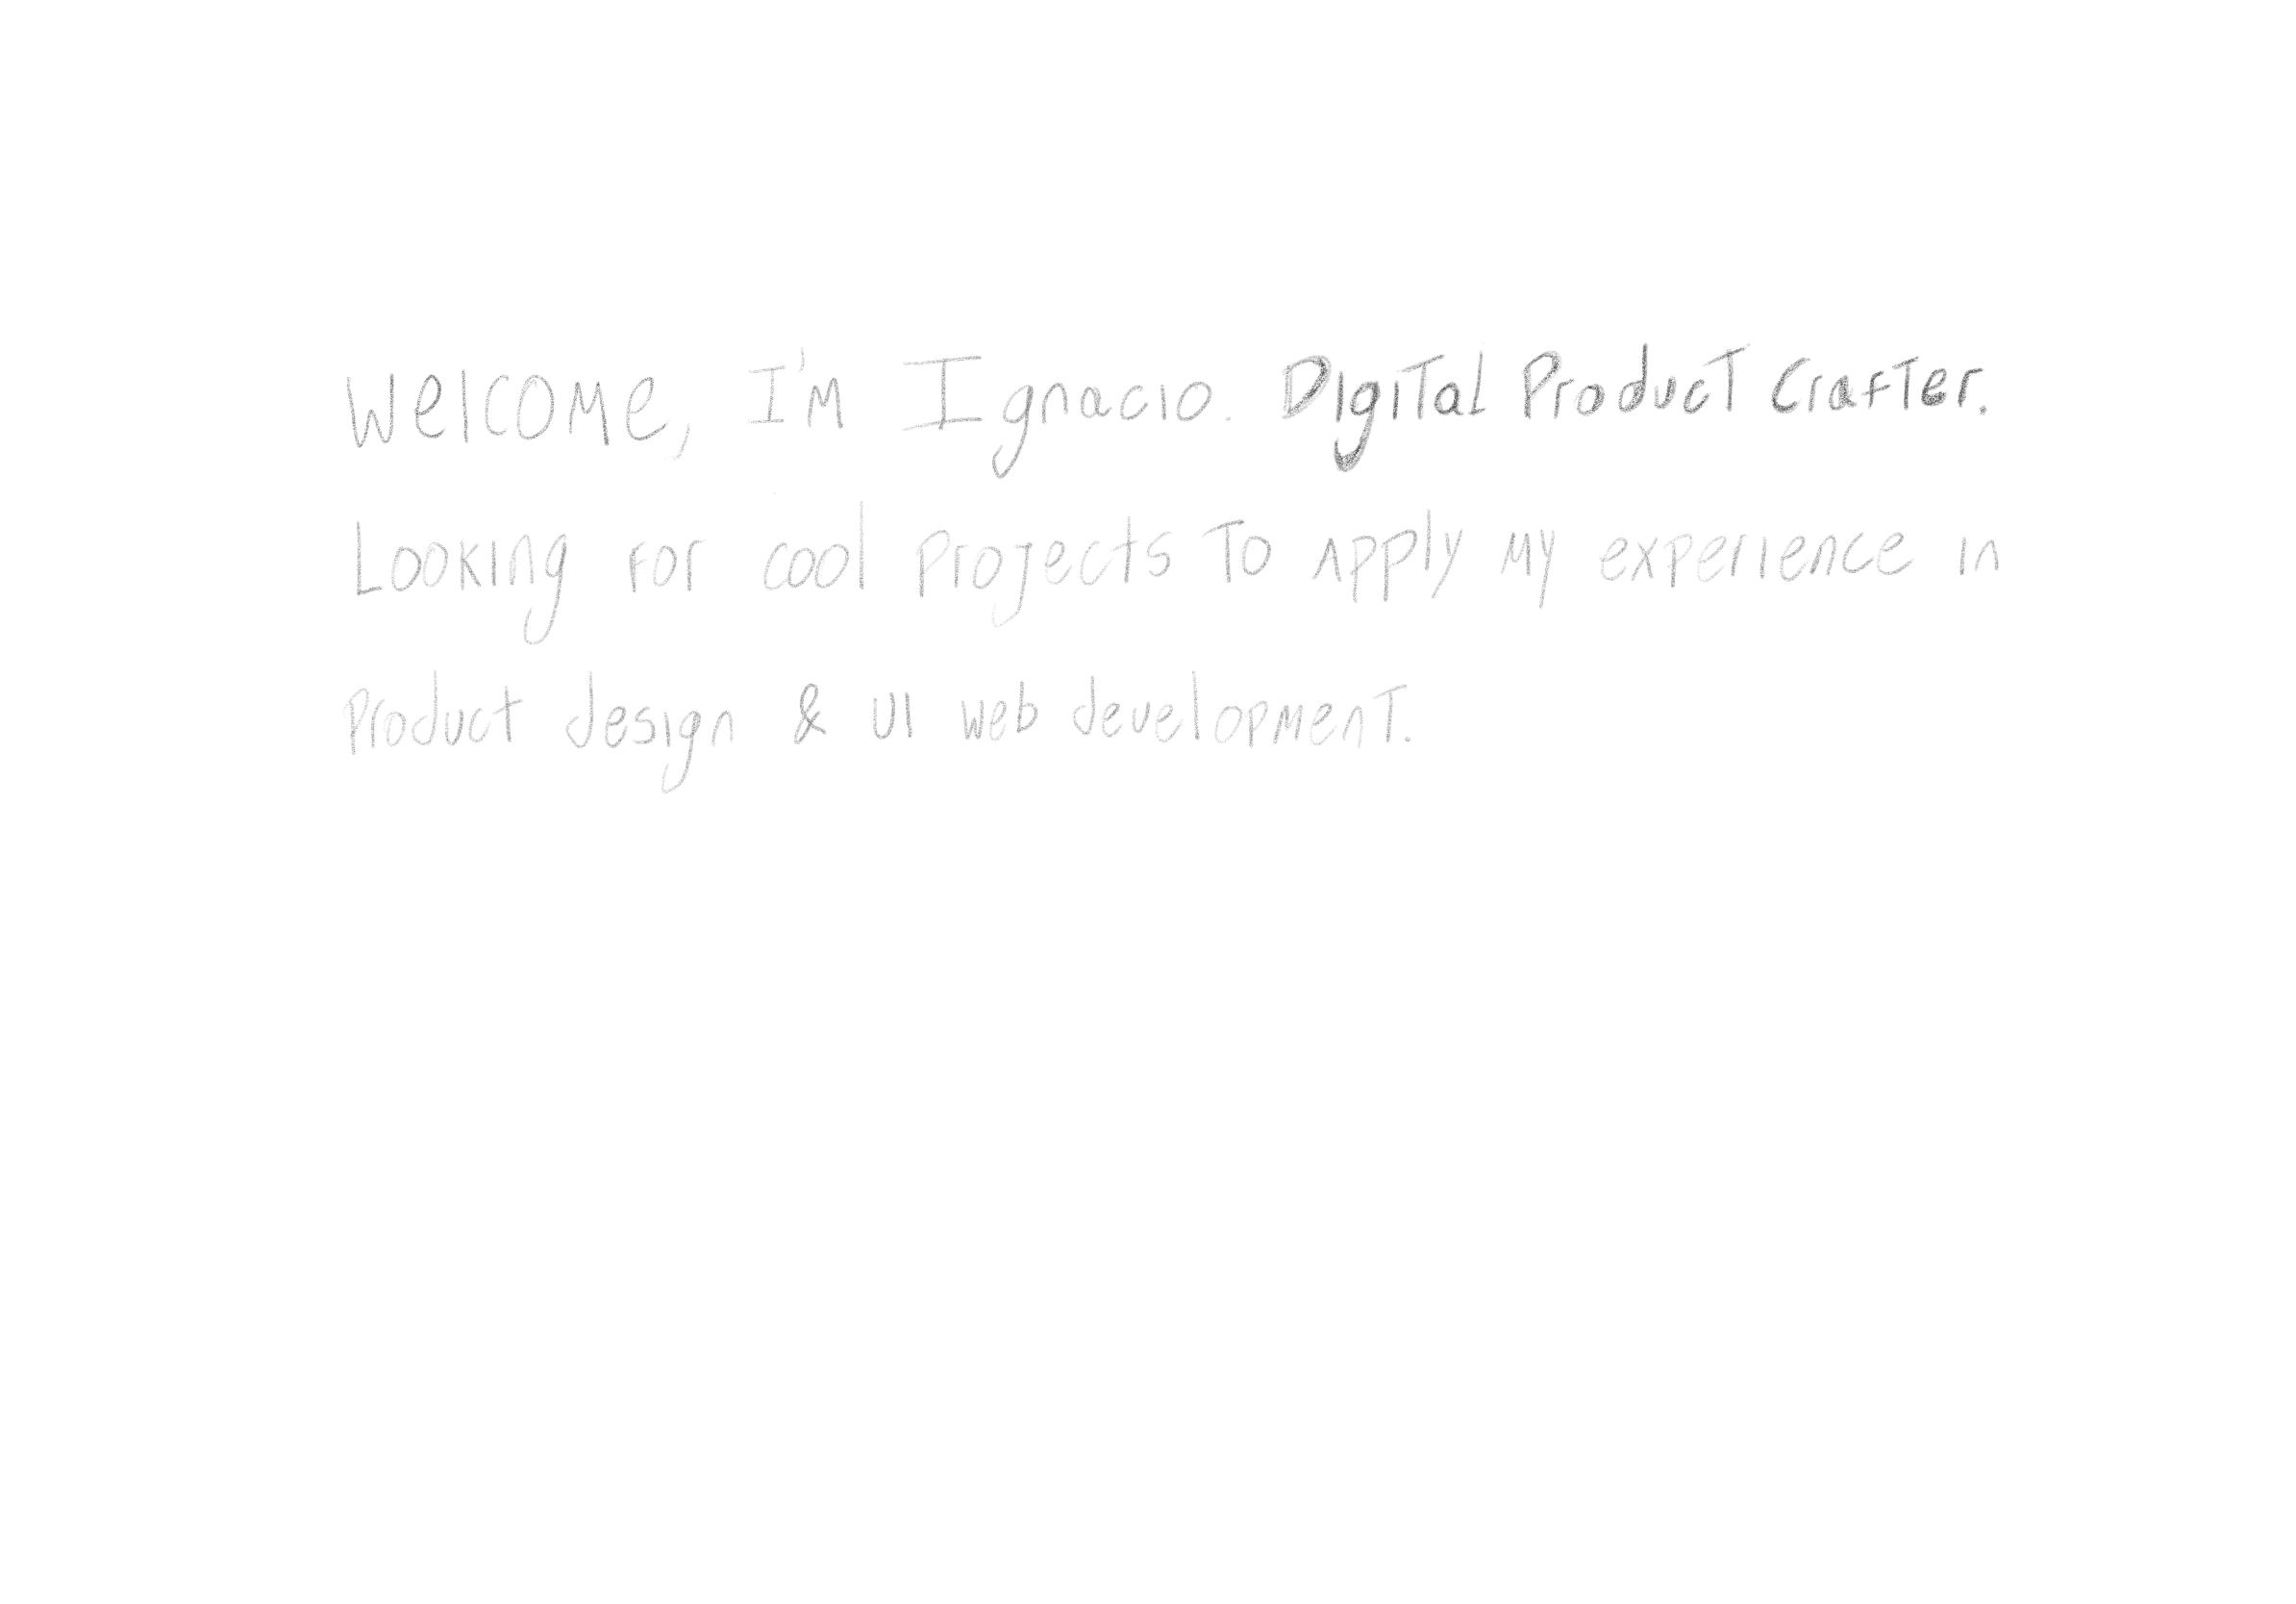 Welcome, I'm Ignacio. Digital Product Crafter.
Looking for cool projects to apply my experience in
Product design & UI web development.